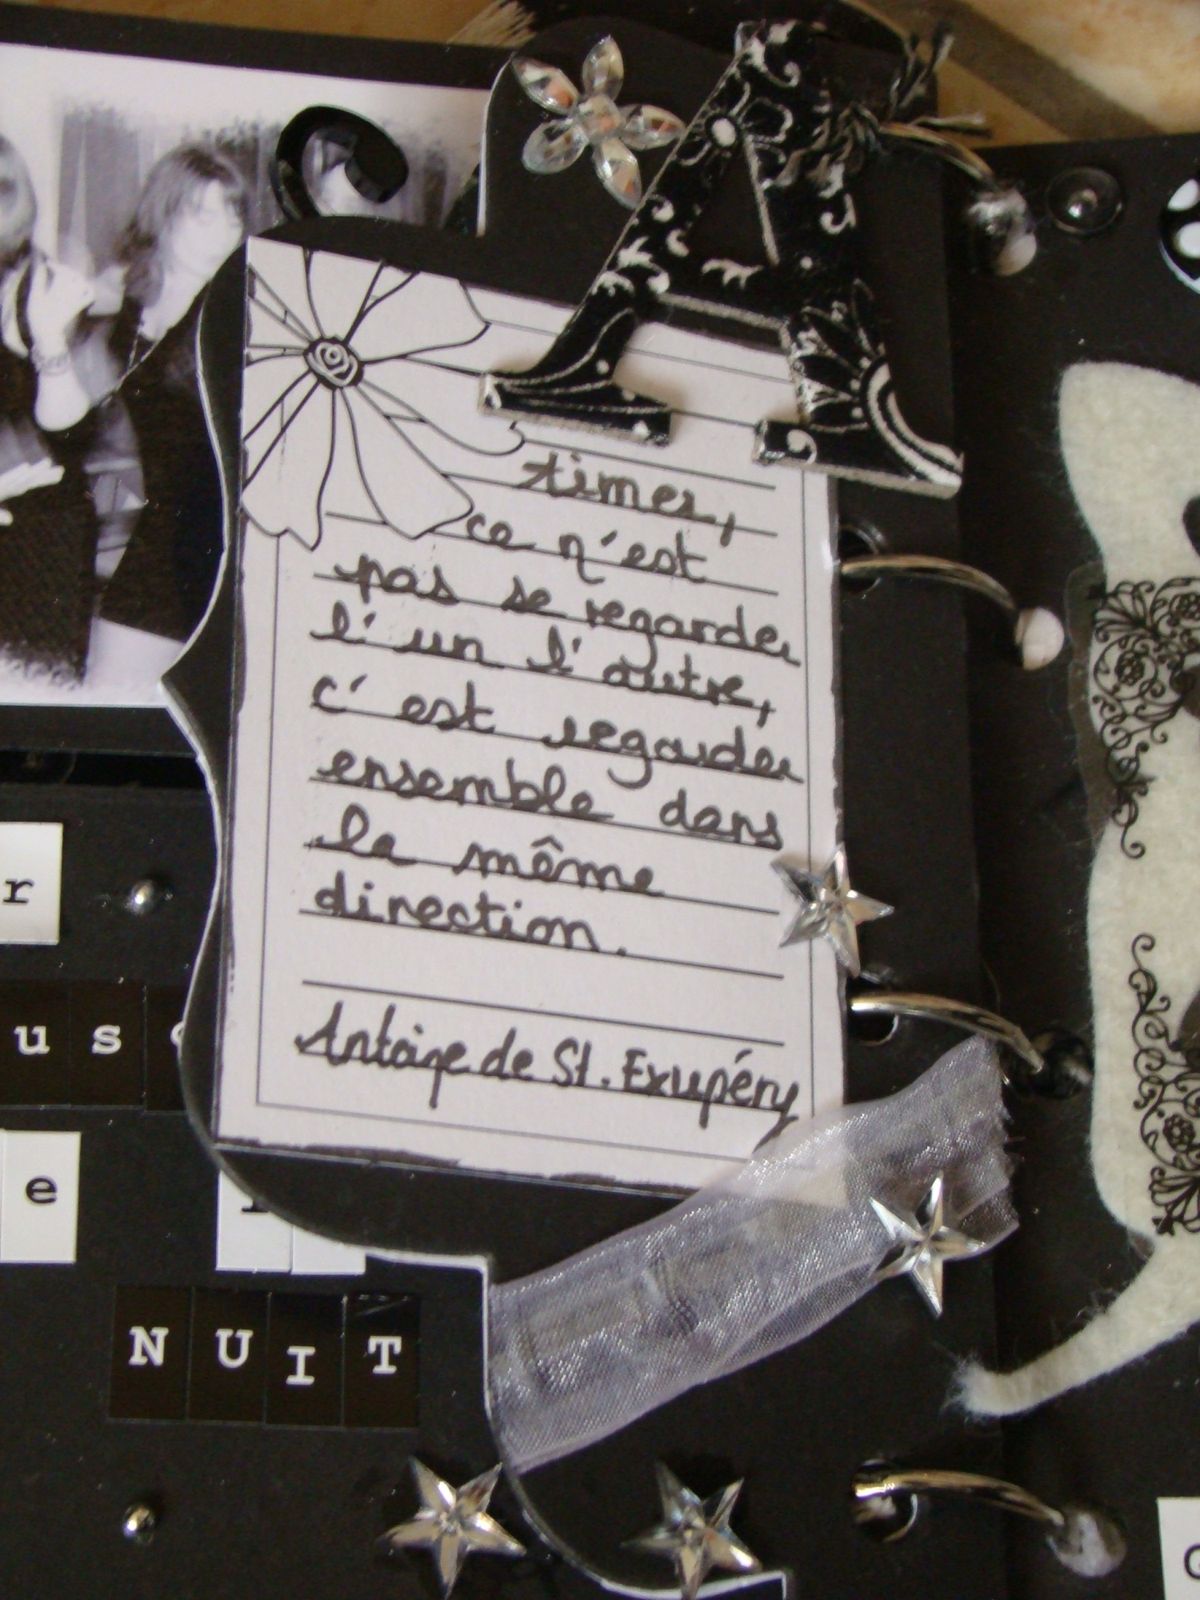 A
times,
ce n'est
pas se regarder
l'un l'autre,
c'est regarder
ensemble dans
la même
direction.
Antoine de St. Exupéry
r
us
e
NUIT